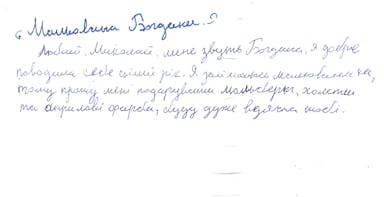 Малковична Богдана.
Любий Миколай, мене звуть Богдана, я добре
поводила себе цілий рік. Я займаюсь малюванням,
тому прошу мені подарувати мольберт, холсти
та акрилові фарби, буду дуже вдячна тобі.